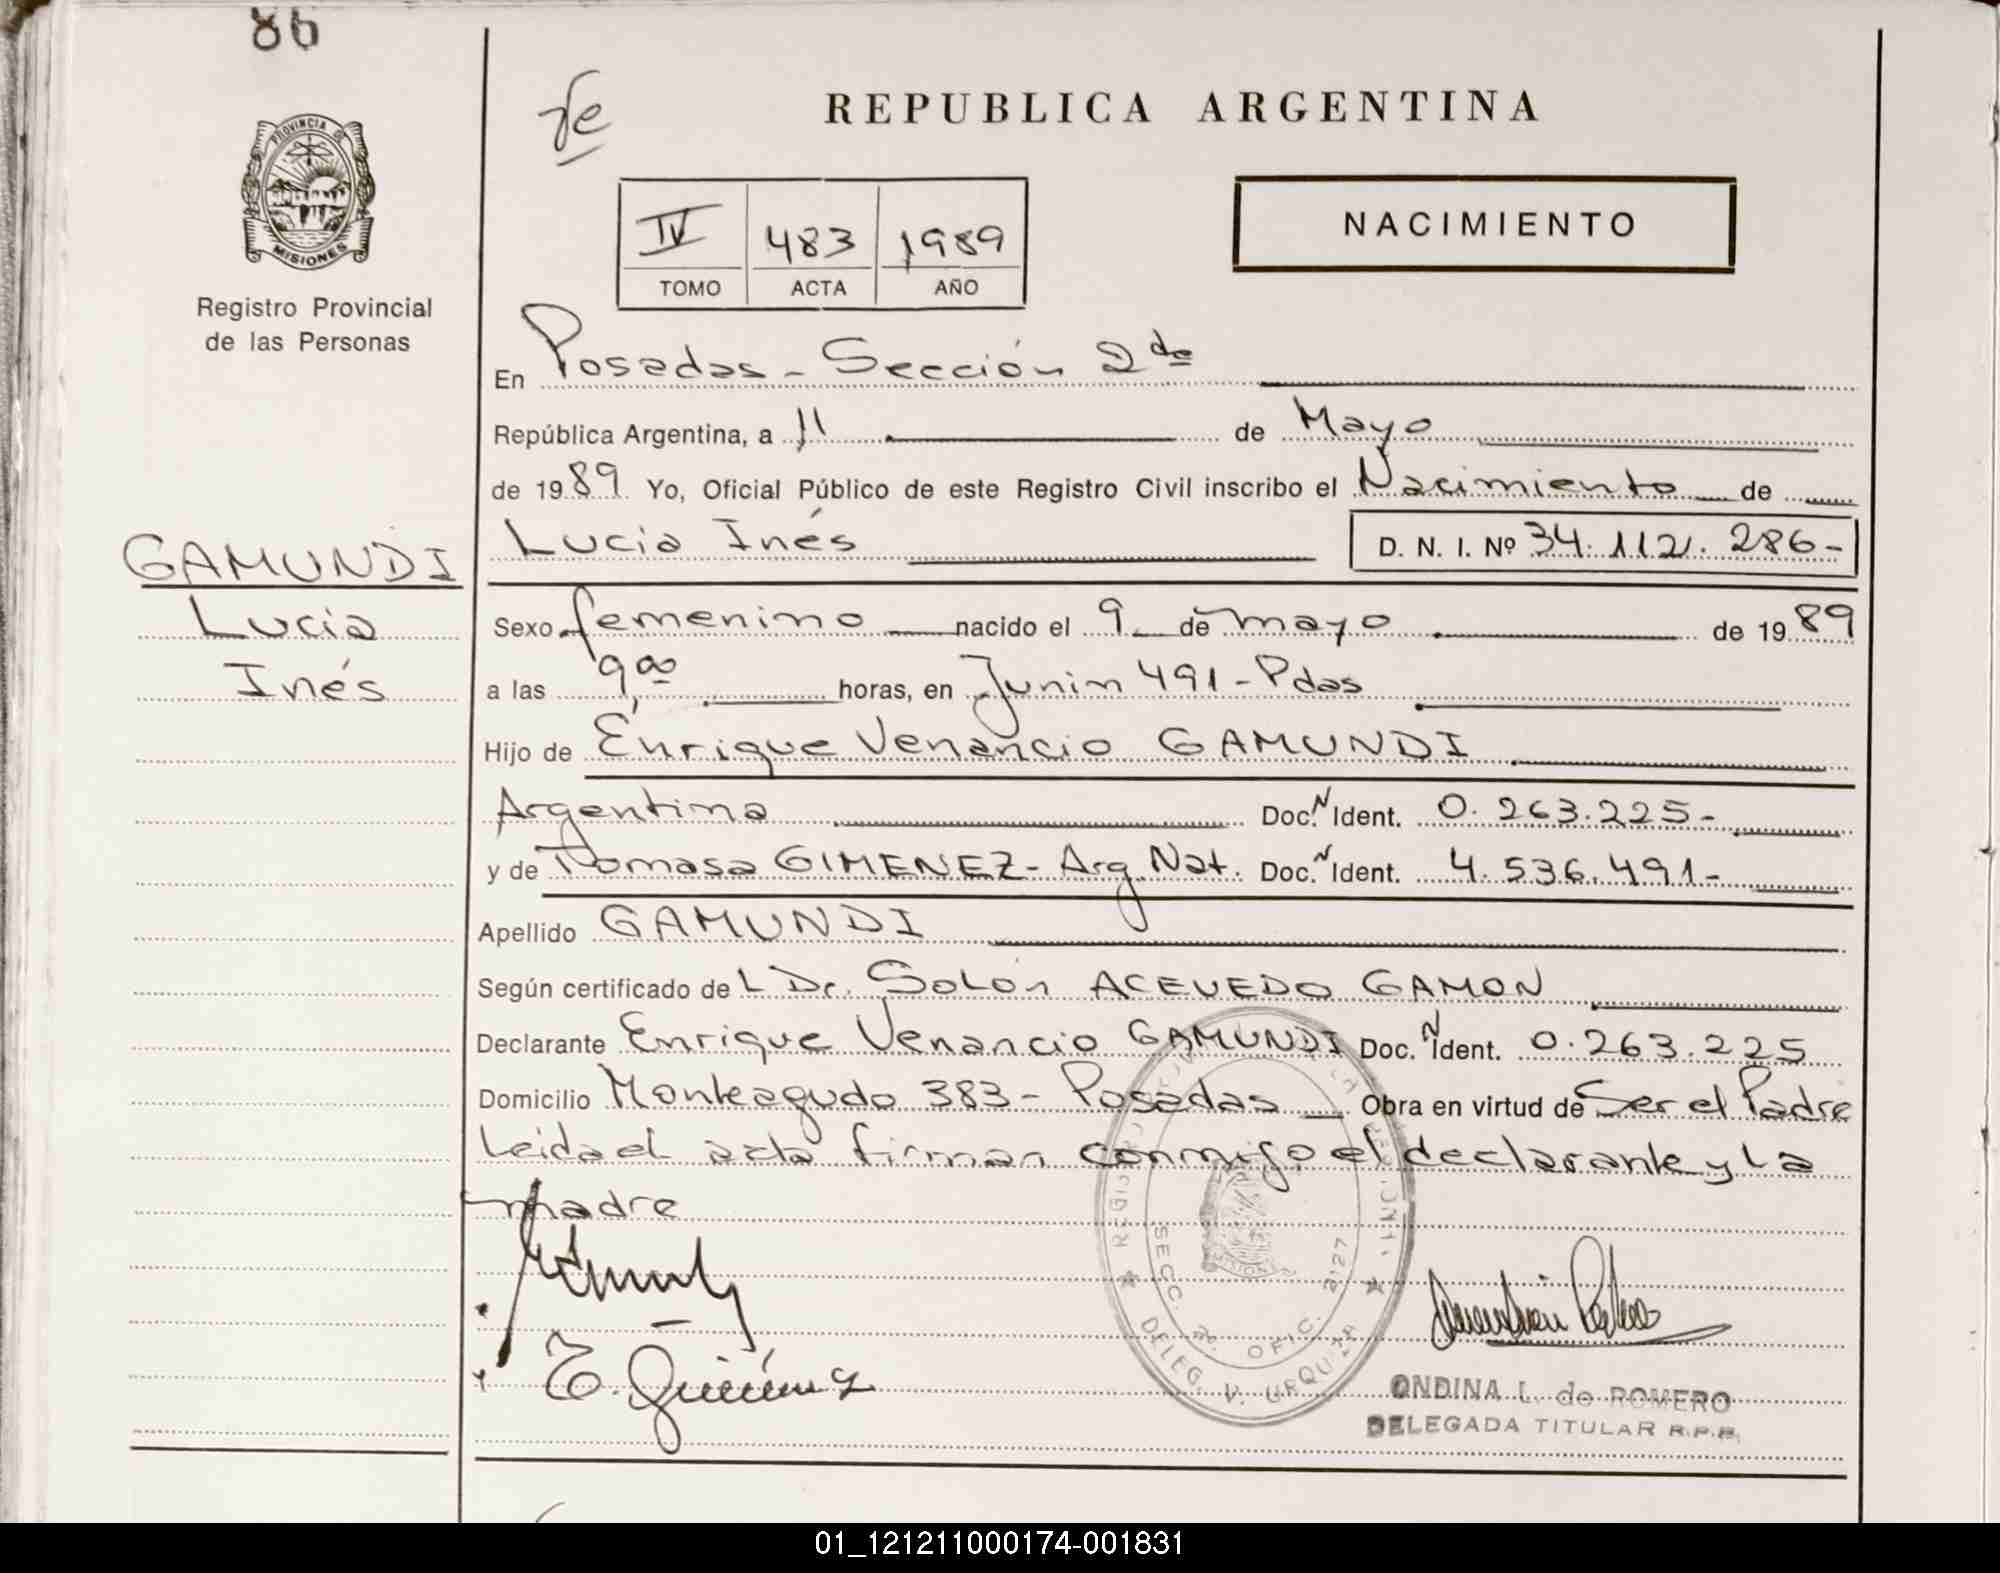 86
PROVINCIA DE
MISIONES
Registro Provincial
de las Personas
REPUBLICA ARGENTINA
NACIMIENTO
IV 483 1989
TOMO ACTA AÑO
En Posadas - Sección 2da
República Argentina, a 11 de Mayo
de 1989 Yo, Oficial Público de este Registro Civil inscribo el Nacimiento de
Lucia Inés D. N. I. Nº 34.112.286-
GAMUNDI
Lucia
Inés
Sexo femenino nacido el 9 de mayo de 1989
a las 9,00 horas, en Junin 491 - Pdas
Hijo de Enrique Venancio GAMUNDI
Argentina Doc. N Ident. 0.263.225-
y de Tomasa GIMENEZ - Arg. Nat. Doc. N Ident. 4.536.491-
Apellido GAMUNDI
Según certificado de L Dr. Solón ACEVEDO GAMON
Declarante Enrique Venancio GAMUNDI Doc. N Ident. 0.263.225
Domicilio Monteagudo 383 - Posadas Obra en virtud de Ser el Padre
Leida el acta firman conmigo el declarante y la
madre
T. Giménez
SECC. 2a. OFIC. 2127
DELEG. V. URQUIZA
ONDINA L. de ROMERO
DELEGADA TITULAR R.P.P.
01_121211000174-001831